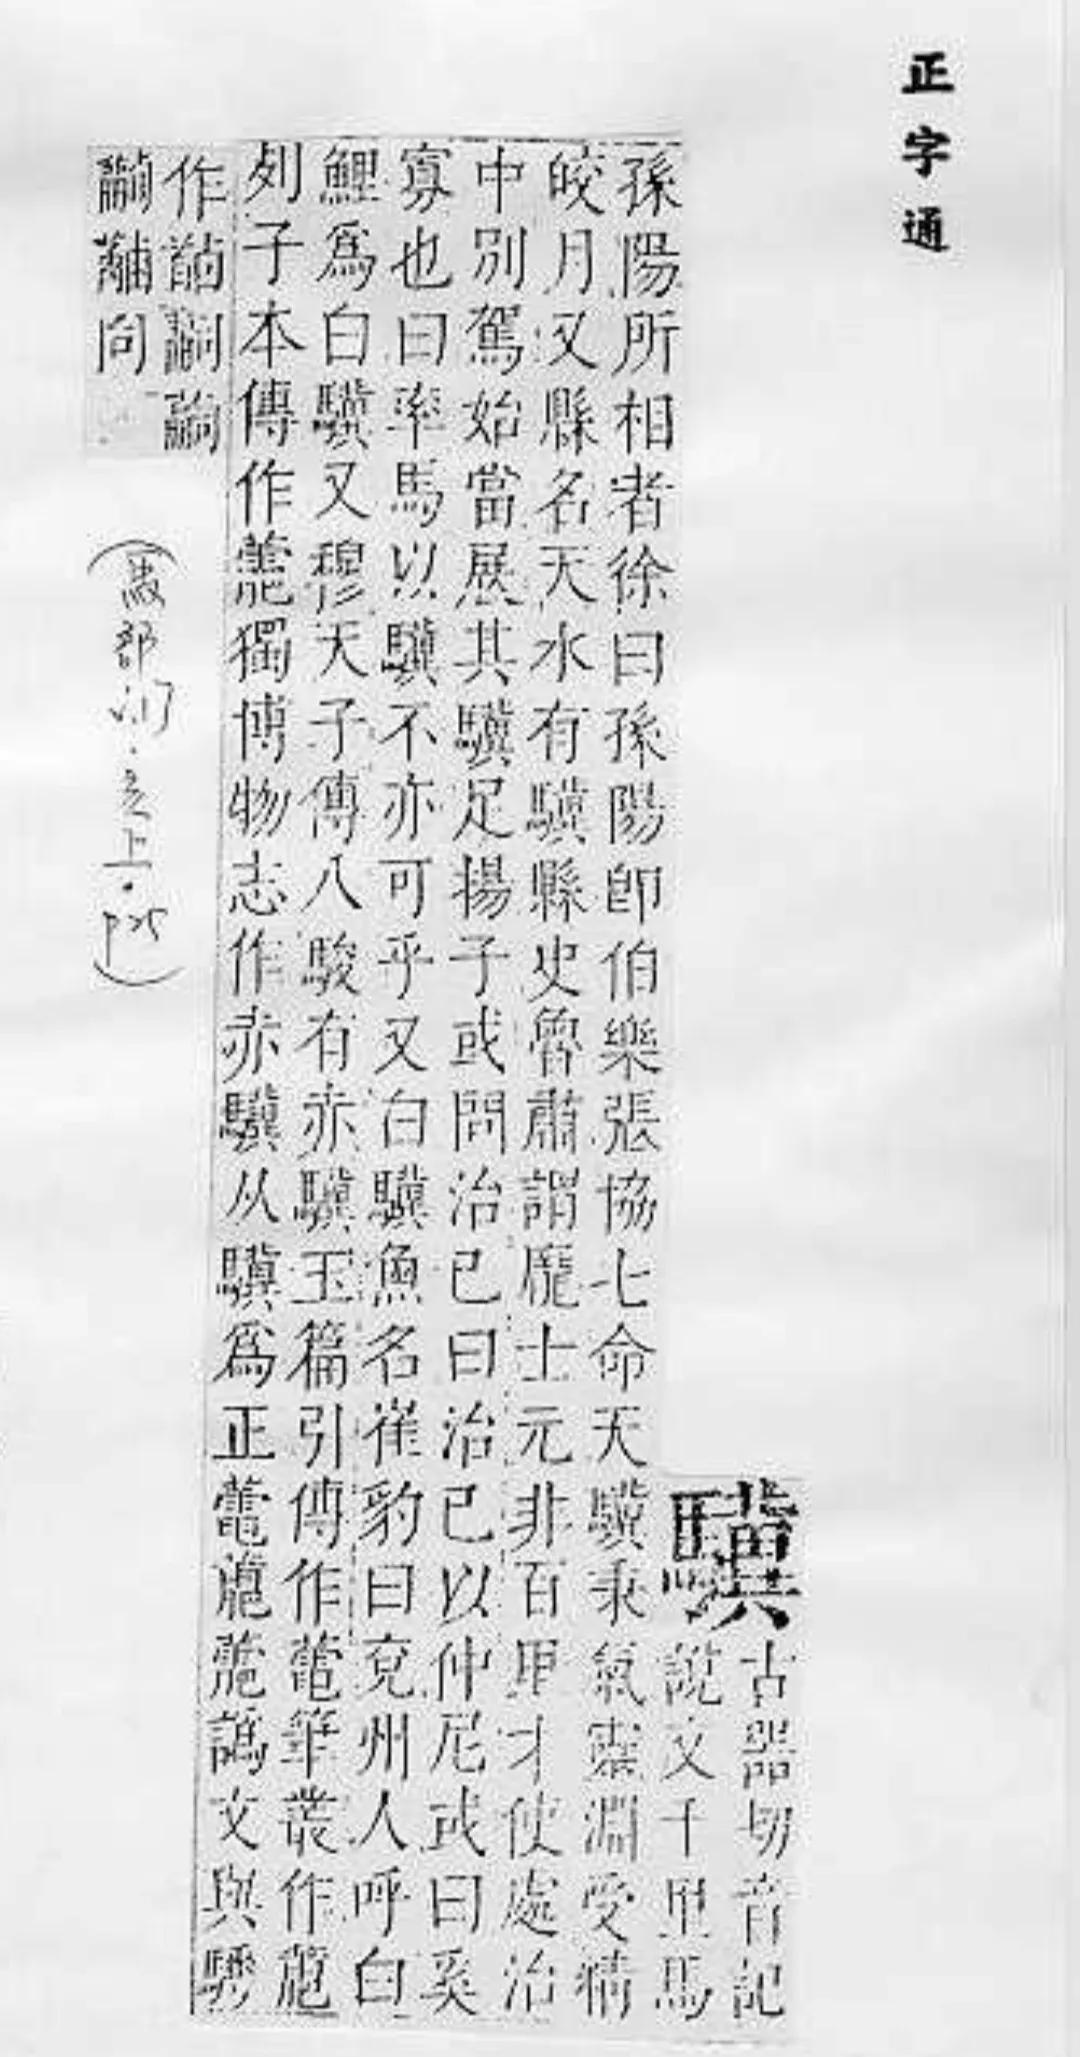 正字通
驥
古器切音記
說文千里馬
孫陽所相者徐曰孫陽卽伯樂張協七命天驥秉氣靈淵受精
皎月又縣名天水有驥縣史魯肅謂龐士元非百里才使處治
中別駕始當展其驥足揚子或問治己曰治己以仲尼或曰奚
寡也曰率馬以驥不亦可乎又白驥魚名崔豹曰兗州人呼白
鯉爲白驥又穆天子傳八駿有赤驥玉篇引傳作𩧐筆叢作
列子本傳作 獨博物志作赤驥从驥爲正 譌文與驂
作
向
(馬部
上.P25)